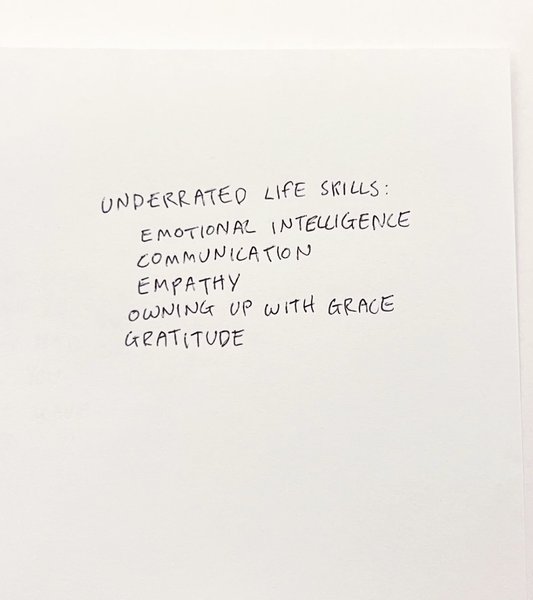 UNDERRATED LIFE SKILLS:
EMOTIONAL INTELLIGENCE
COMMUNICATION
EMPATHY
OWNING UP WITH GRACE
GRATITUDE